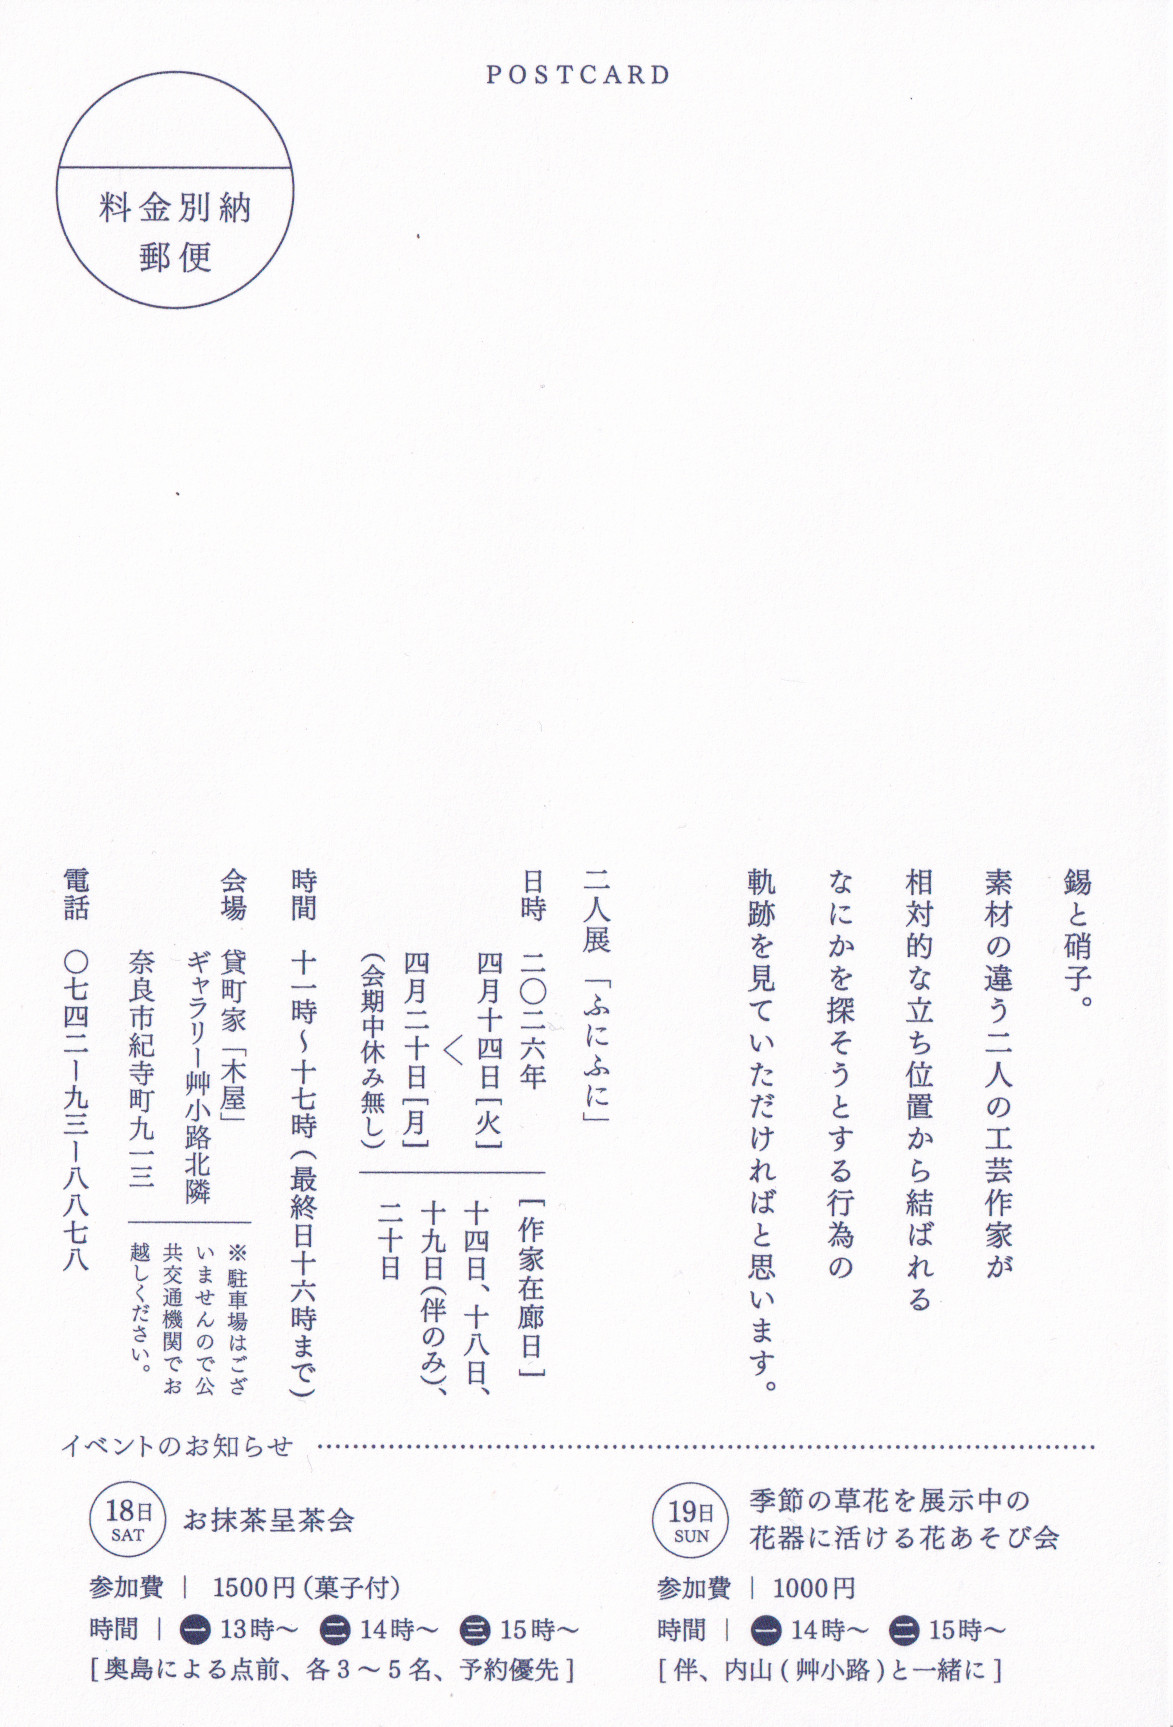 POSTCARD
料金別納
郵便
錫と硝子。
素材の違う二人の工芸作家が
相対的な立ち位置から結ばれる
なにかを探そうとする行為の
軌跡を見ていただければと思います。
二人展「ふにふに」
日時 二〇二六年
四月十四日[火]
〜
四月二十日[月]
(会期中休み無し)
[作家在廊日]
十四日、十八日、
十九日(伴のみ)、
二十日
時間 十一時〜十七時(最終日十六時まで)
会場 貸町家「木屋」
ギャラリー艸小路北隣
奈良市紀寺町九一三
※駐車場はござ
いませんので公
共交通機関でお
越しください。
電話 〇七四二ー九三ー八八七八
イベントのお知らせ
18日
SAT
お抹茶呈茶会
参加費｜ 1500円(菓子付)
時間｜一 13時〜 二 14時〜 三 15時〜
[奥島による点前、各3〜5名、予約優先]
19日
SUN
季節の草花を展示中の
花器に活ける花あそび会
参加費｜1000円
時間｜一 14時〜 二 15時〜
[伴、内山(艸小路)と一緒に]